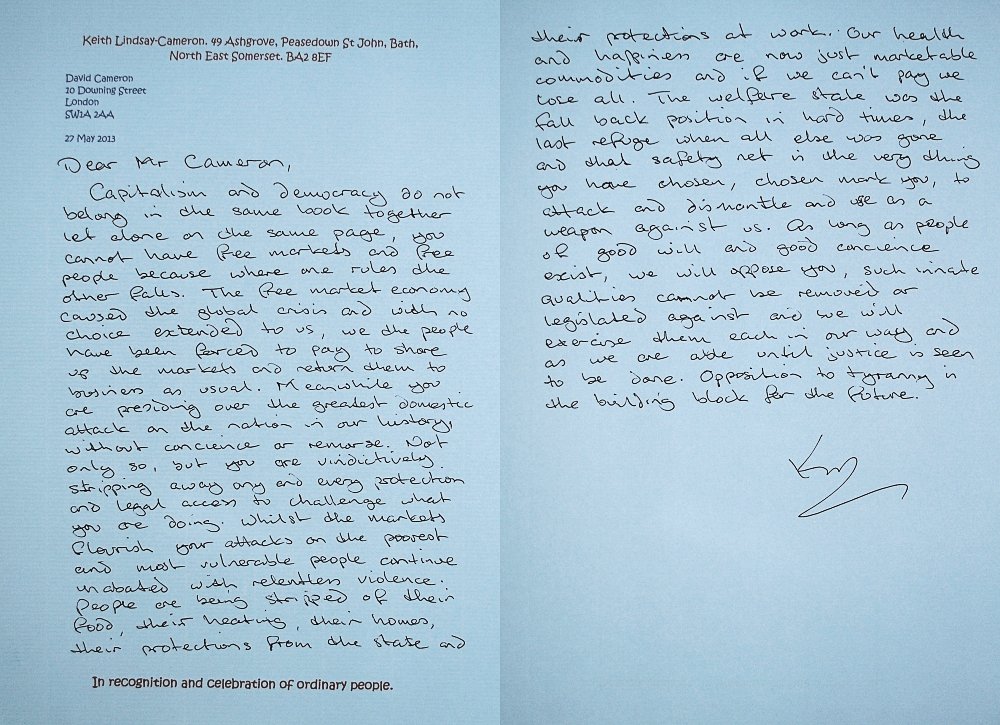 Keith Lindsay-Cameron. 49 Ashgrove, Peasedown St John, Bath,
North East Somerset. BA2 8EF
David Cameron
10 Downing Street
London
SW1A 2AA
27 May 2013
Dear Mr Cameron,
Capitalism and democracy do not
belong in the same book together
let alone on the same page, you
cannot have free markets and free
people because where one rules the
other falls. The free market economy
caused the global crisis and with no
choice extended to us, we the people
have been forced to pay to shore
up the markets and return them to
business as usual. Meanwhile you
are presiding over the greatest domestic
attack on the nation in our history,
without concience or remorse. Not
only so, but you are vindictively
stripping away any and every protection
and legal access to challenge what
you are doing. Whilst the markets
flourish your attacks on the poorest
and most vulnerable people continue
unabated with relentless violence.
People are being stripped of their
food, their heating, their homes,
their protections from the state and
In recognition and celebration of ordinary people.
their protections at work. Our health
and happiness are now just marketable
commodities and if we can't pay we
lose all. The welfare state was the
fall back position in hard times, the
last refuge when all else was gone
and that safety net is the very thing
you have chosen, chosen mark you, to
attack and dismantle and use as a
weapon against us. As long as people
of good will and good concience
exist, we will oppose you, such innate
qualities cannot be removed or
legislated against and we will
exercise them each in our way and
as we are able until justice is seen
to be done. Opposition to tyranny is
the building block for the future.